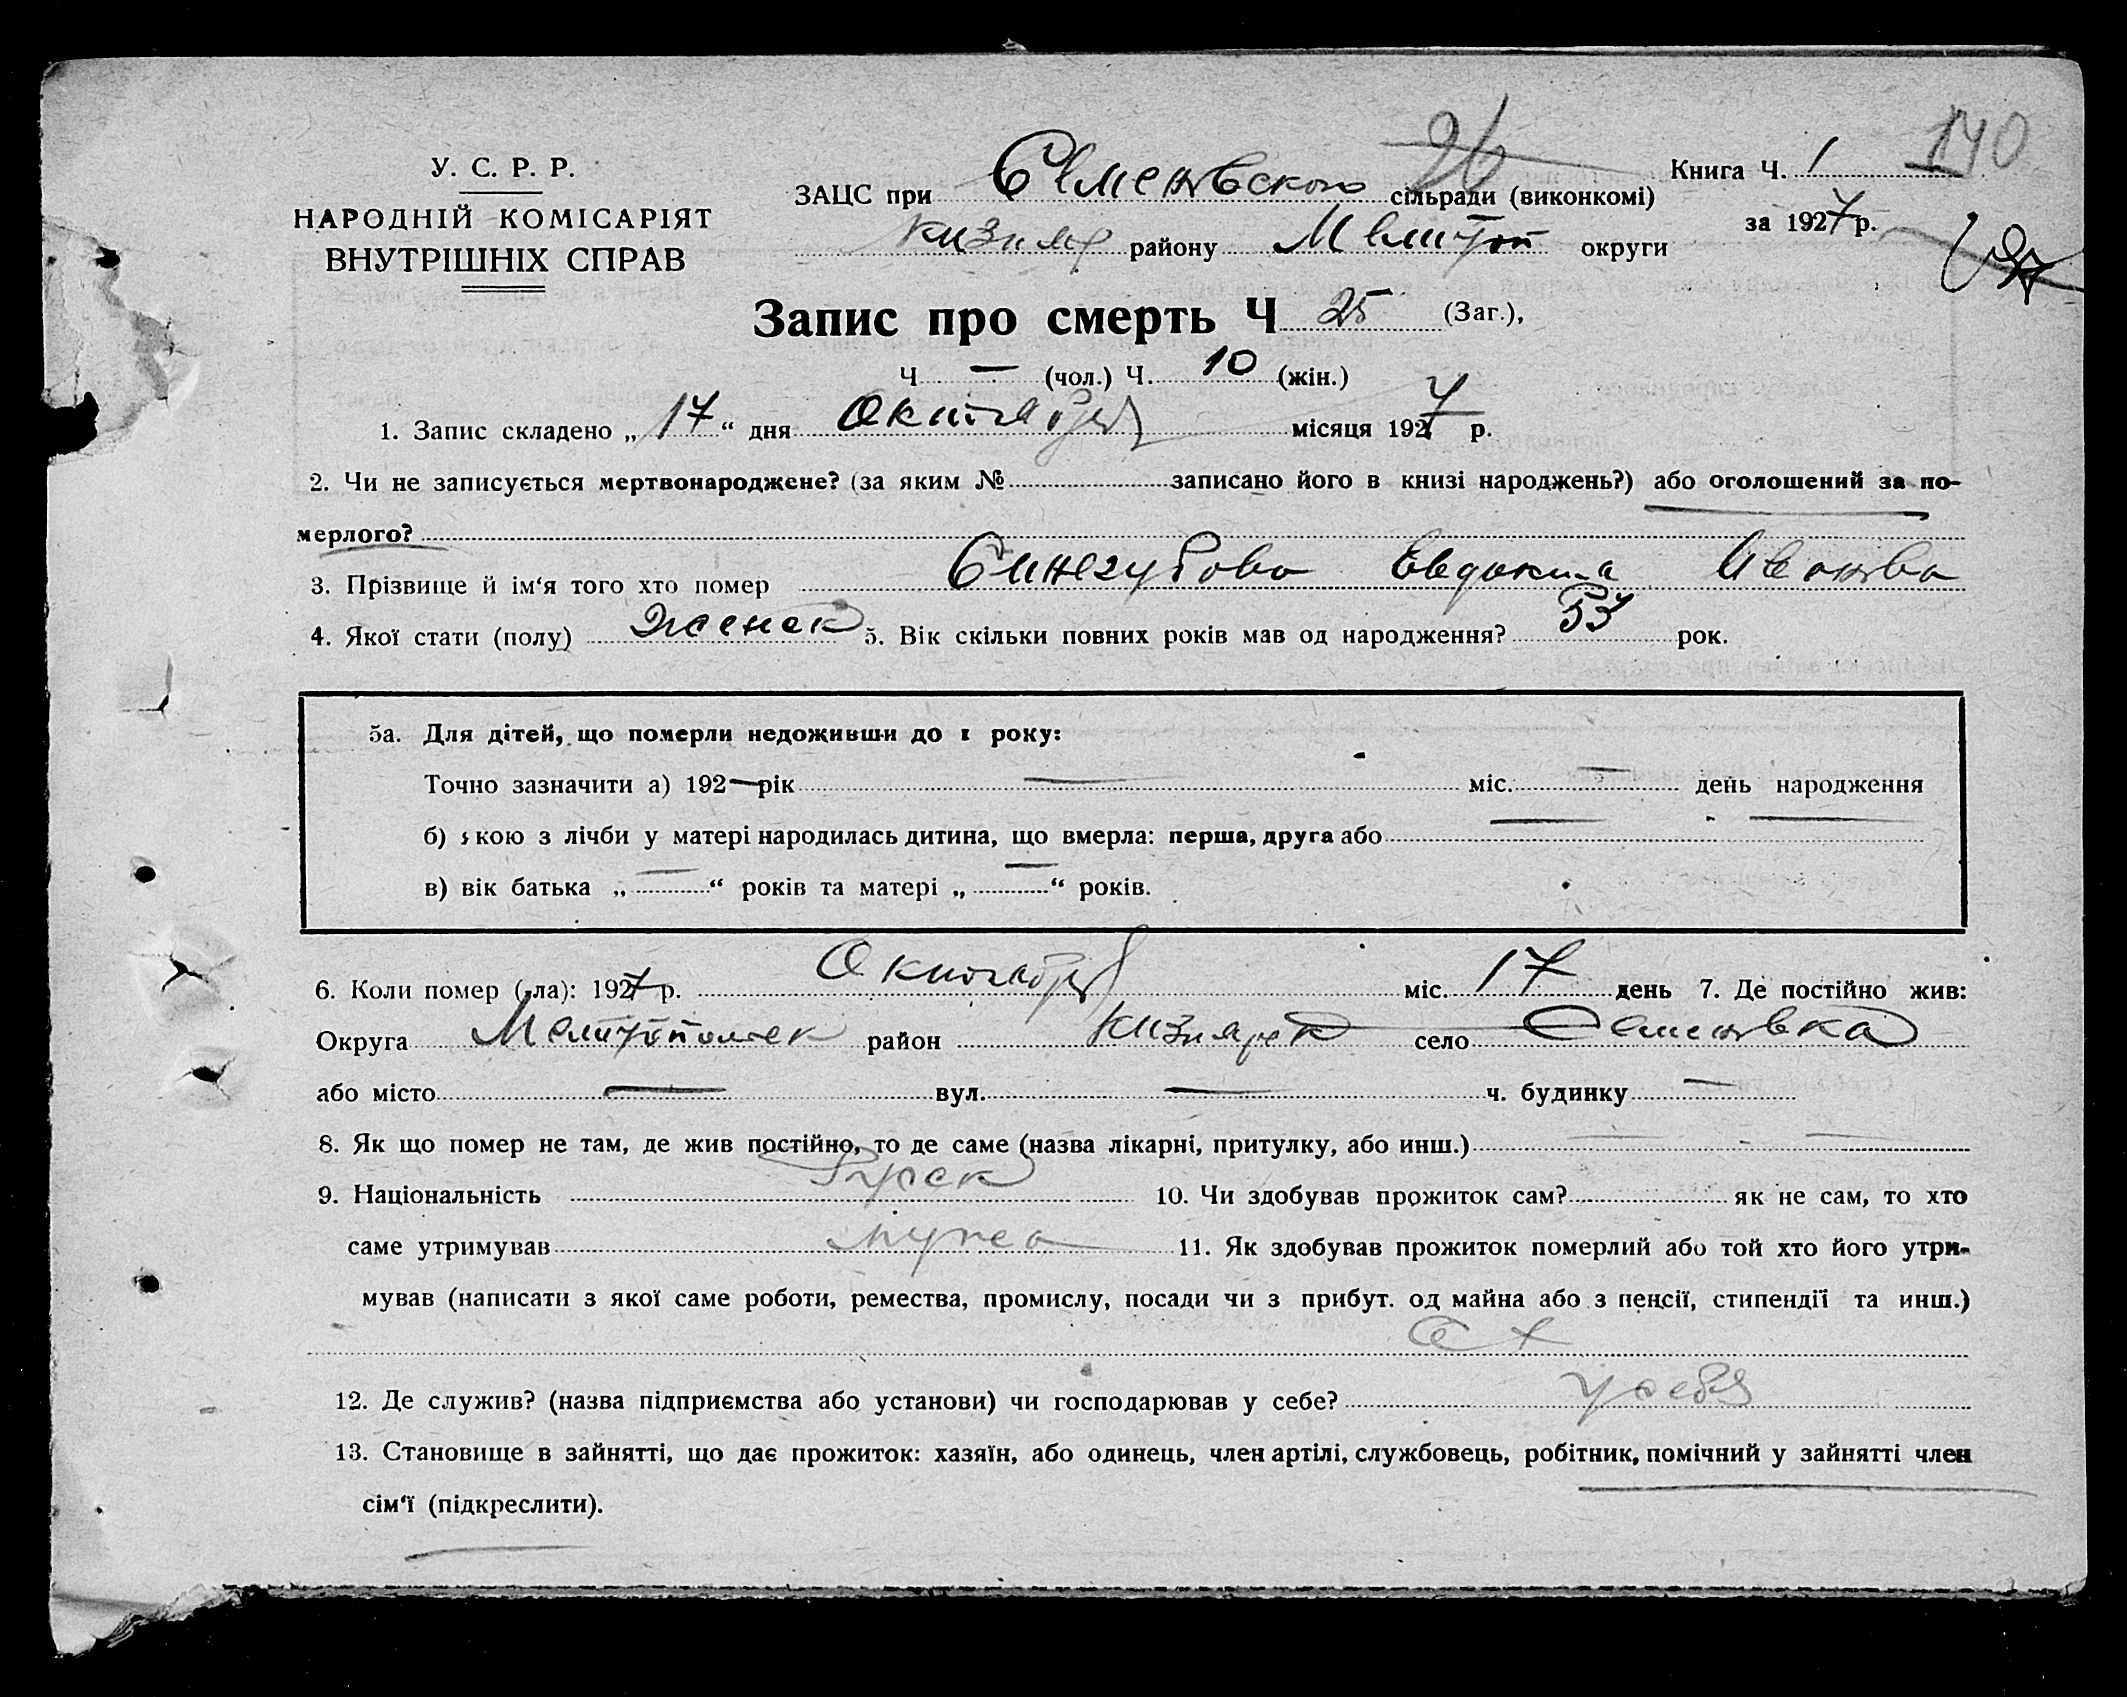 26
140
У. С. Р. Р.
НАРОДНІЙ КОМІСАРІЯТ
ВНУТРІШНІХ СПРАВ
ЗАЦС при Семеновского сільради (виконкомі)
Книга Ч. 1
за 1927 р.
Кизияр району Мелитоп округи
Запис про смерть Ч 25 (Заг.),
Ч — (чол.) Ч. 10 (жін.)
1. Запис складено „ 17 “ дня Октября місяця 1927 р.
2. Чи не записується мертвонароджене? (за яким № записано його в книзі народжень?) або оголошений за по-
мерлого?
3. Прізвище й ім‘я того хто помер Синегубова Евдокия Ивановна
4. Якої стати (полу) женск 5. Вік скільки повних років мав од народження? 53 рок.
5а. Для дітей, що померли недоживши до 1 року:
Точно зазначити а) 192— рік — міс. — день народження
б) якою з лічби у матері народилась дитина, що вмерла: перша, друга або —
в) вік батька „ — “ років та матері „ — “ років.
6. Коли помер (-ла): 1927 р. Октября міс. 17 день 7. Де постійно жив:
Округа Мелитопольск район Кизиярск село Семеновка
або місто — вул. — ч. будинку —
8. Як що помер не там, де жив постійно, то де саме (назва лікарні, притулку, або инш.) —
9. Національність Русск 10. Чи здобував прожиток сам? як не сам, то хто
саме утримував мужа 11. Як здобував прожиток померлий або той хто його утри-
мував (написати з якої саме роботи, ремества, промислу, посади чи з прибут. од майна або з пенсії, стипендії та инш.)
с х
12. Де служив? (назва підприємства або установи) чи господарював у себе? у себя
13. Становище в зайнятті, що дає прожиток: хазяїн, або одинець, член артілі, службовець, робітник, помічний у зайнятті член
сім‘ї (підкреслити).